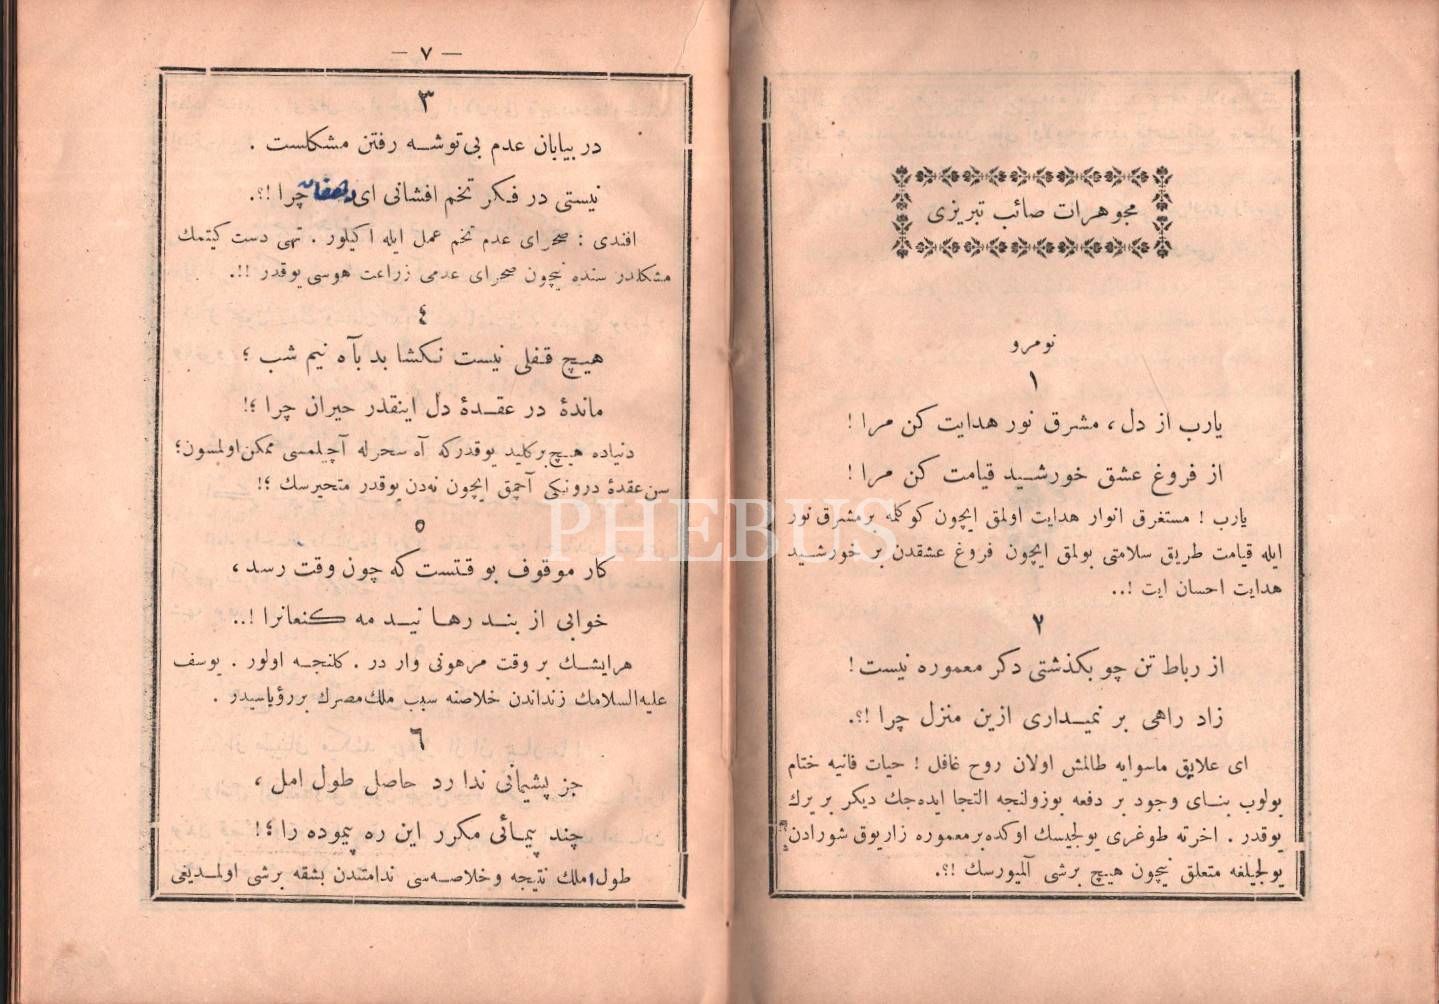 مجوهرات صائب تبریزی
نومرو
١
یارب از دل ، مشرق نور هدایت کن مرا !
از فروغ عشق خورشـید قیامت کن مرا !
یارب ! مستغرق انوار هدایت اولمق ایچون کوکلمه برمشرق نور
ایله قیامت طریق سلامتی بولمق ایچون فروغ عشقدن بر خورشـید
هدایت احسان ایت !..
٢
از رباط تن چو بکذشتی دکر معموره نیست !
زاد راهی بر نمیـداری ازین منزل چرا !؟.
ای علایق ماسوایه طالمش اولان روح غافل ! حیات فانیه ختام
بولوب بنـای وجود بر دفعه بوزولنجه التجا ایده‌جك دیکر بر یرك
یوقدر . اخرته طوغری یولجیسك اوکده برمعموره زاریوق شورادن
یولجیلغه متعلق نیچون هیچ برشی آلمیورسك !؟.
— ٧ —
٣
در بیابان عدم بی توشـه رفتن مشکلست .
نیستی در فـکر تخم افشانی ای دهقان چرا !؟.
افندی : صحرای عدم تخم عمل ایله اکیلور . تهی دست کیتمك
مشکلدر سنده نیچون صحرای عدمی زراعت هوسی یوقدر !!.
٤
هیـچ قـفلی نیست نـکشاید بآه نیم شب ؛
ماندهٔ در عقـدهٔ دل اینقدر حیران چرا ؟!
دنیاده هیـچ برکلید یوقدرکه آه سحرله آچیلمسی ممکن‌اولمسون؛
سن عقدهٔ درونکی آچمق ایچون نه‌دن یوقدر متحیرسك ؟!
٥
کار موقوف بوقتست که چون وقت رسد ،
خوابی از بنـد رهـا نیـد مه کنعانرا !..
هرایشـك بر وقت مرهونی وار در . کلنجـه اولور . یوسف
علیه‌السلامك زنداندن خلاصنه سبب ملك‌مصرك بررؤیاسیدر .
٦
جز پشیمانی ندارد حاصل طول امل ،
چند پیمـائی مکرر این ره پیموده را ؟!
طول املك نتیجه و خلاصـه‌سی ندامتدن بشقه برشی اولمـدیغی
PHEBUS